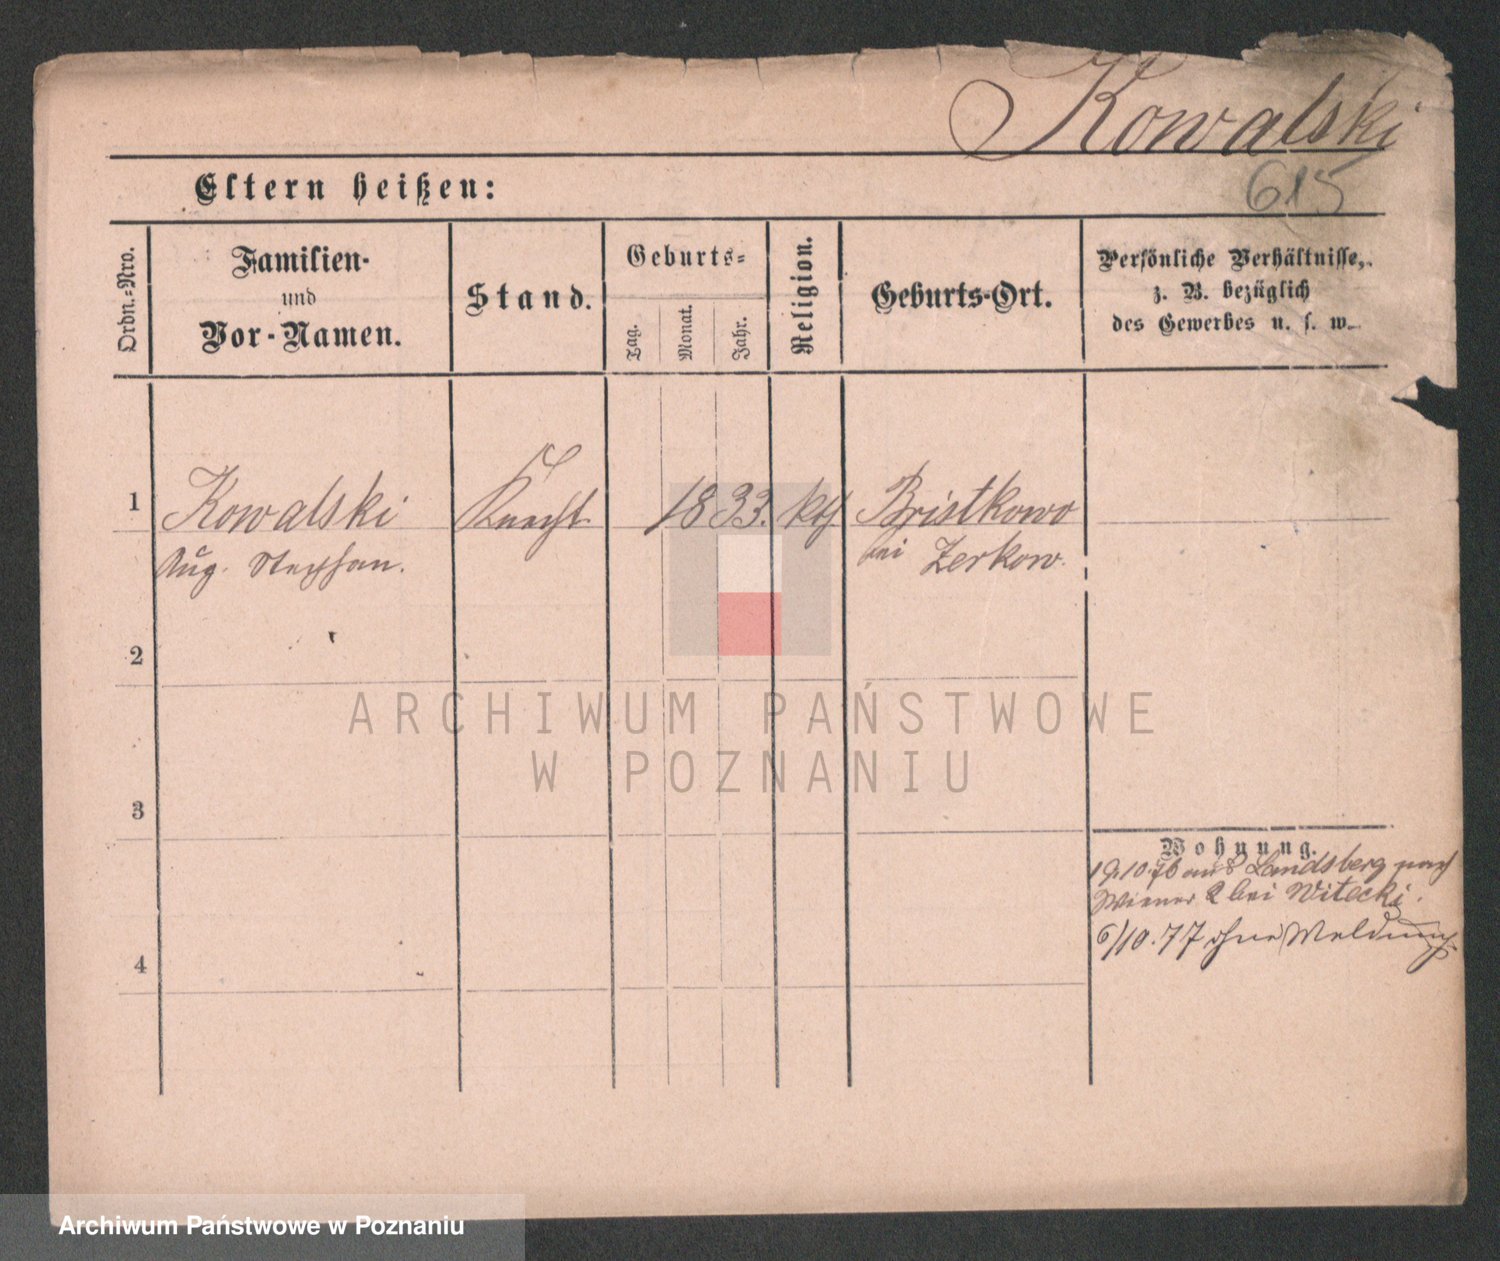 Kowalski
615
Eltern heißen:
Ordn.-Nro.
Familien-
und
Vor-Namen.
Stand.
Geburts-
Tag.
Monat.
Jahr.
Religion.
Geburts-Ort.
Persönliche Verhältnisse,
z. B. bezüglich
des Gewerbes u. s. w.
1 Kowalski Knecht 1833. kth Bristkowo
Aug. Stephan. bei Zerkow.
2
3
4
Wohnung.
19.10.76 aus Landsberg nach
Wiener 2 bei Witecki.
6/10.77 ohne Meldung
ARCHIWUM PAŃSTWOWE
W POZNANIU
Archiwum Państwowe w Poznaniu